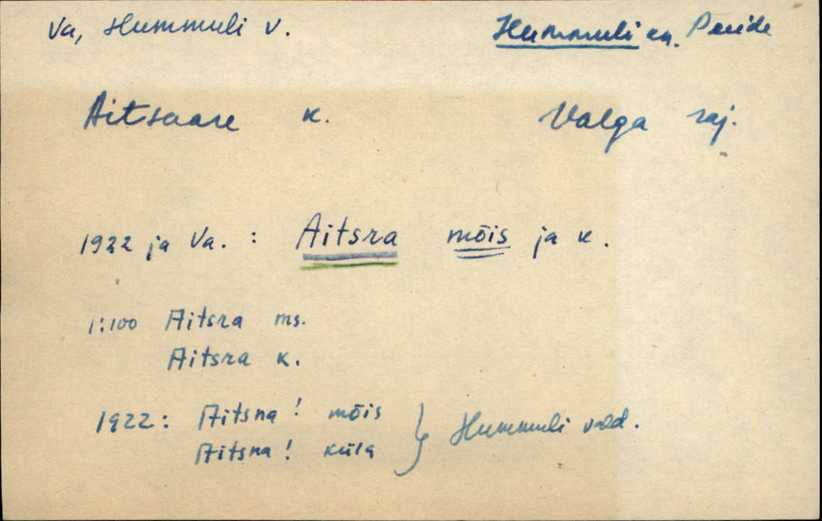 Va, Hummuli v. Hummuli en. Peride
Aitsaare k. Valga raj.
1922 ja Va. : Aitsra mõis ja k.
1:100 Aitsra ms.
Aitsra k.
1922: Aitsna! mõis
Aitsna! küla } Hummuli vald.